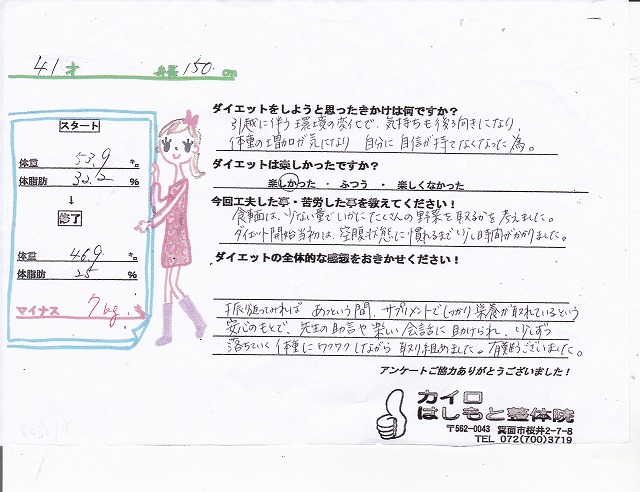 41才 身長 150 cm
スタート
体重 53.9 キロ
体脂肪 32.2 %
↓
終了
体重 46.9 キロ
体脂肪 25 %
マイナス 7kg キロ
ダイエットをしようと思ったきかけは何ですか？
引越に伴う環境の変化で、気持ちも後ろ向きになり、
体重の増加が気になり 自分に自信が持てなくなった為。
ダイエットは楽しかったですか？
楽しかった ・ ふつう ・ 楽しくなかった
今回工夫した事・苦労した事を教えてください！
食事面は、少ない量でいかにたくさんの野菜を取るかを考えました。
ダイエット開始当初は、空腹状態に慣れるまで少し時間がかかりました。
ダイエットの全体的な感想をおきかせください！
振り返ってみれば あっという間、サプリメントでしっかり栄養が取れているという
安心のもとで、先生の助言や楽しい会話に助けられ、少しずつ
落ちていく体重にワクワクしながら取り組めました。有難うございました。
アンケートご協力ありがとうございました！
カイロ
はしもと整体院
〒562-0043 箕面市桜井2-7-8
TEL 072(700)3719